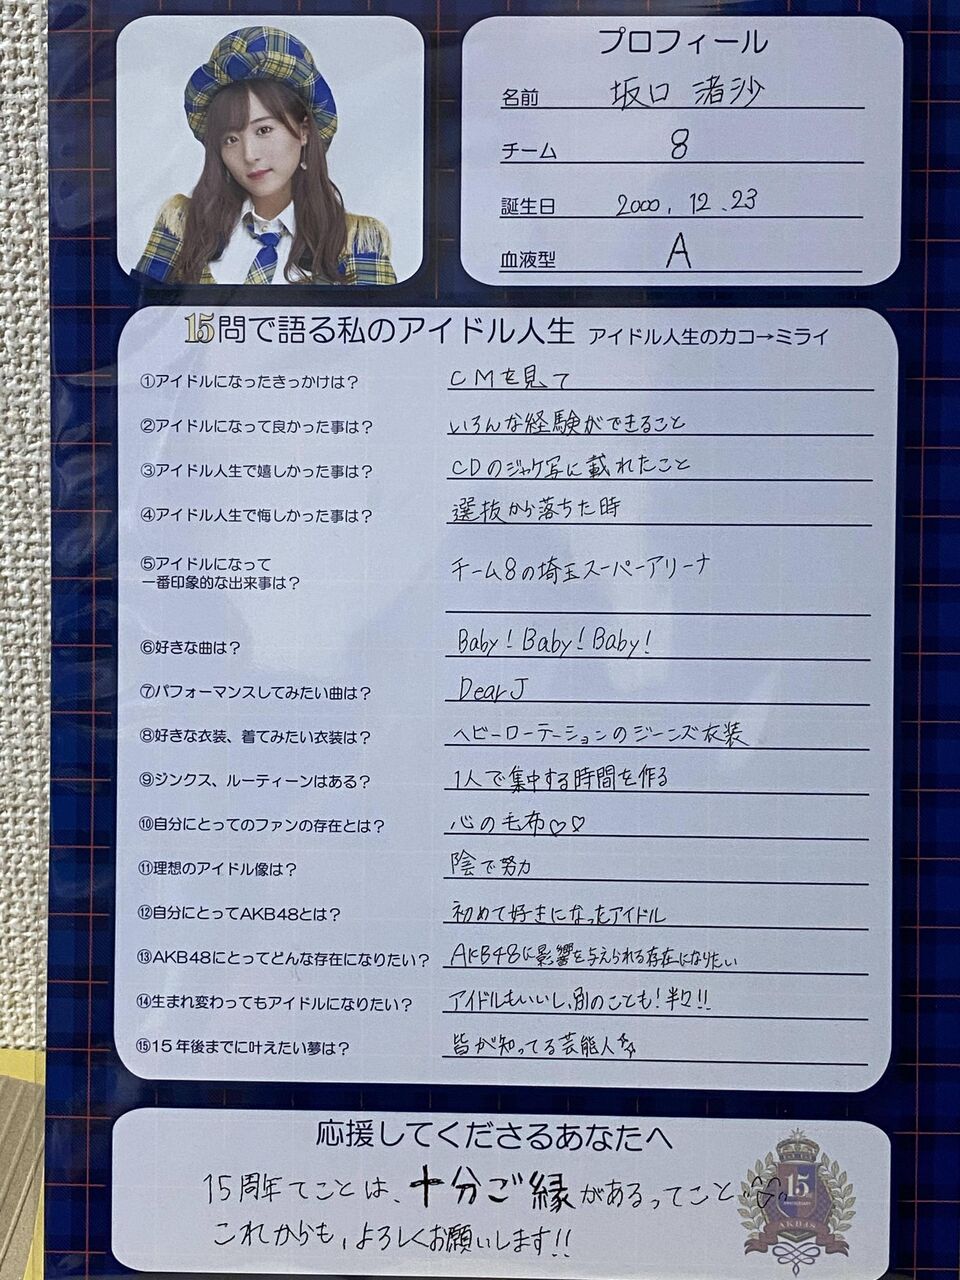 プロフィール
名前 坂口 渚沙
チーム 8
誕生日 2000. 12. 23
血液型 A
15問で語る私のアイドル人生 アイドル人生のカコ→ミライ
①アイドルになったきっかけは? CMを見て
②アイドルになって良かった事は? いろんな経験ができること
③アイドル人生で嬉しかった事は? CDのジャケ写に載れたこと
④アイドル人生で悔しかった事は? 選抜から落ちた時
⑤アイドルになって
一番印象的な出来事は? チーム8の埼玉スーパーアリーナ
⑥好きな曲は? Baby! Baby! Baby!
⑦パフォーマンスしてみたい曲は? Dear J
⑧好きな衣装、着てみたい衣装は? ヘビーローテーションのジーンズ衣装
⑨ジンクス、ルーティーンはある? 1人で集中する時間を作る
⑩自分にとってのファンの存在とは? 心の毛布♡♡
⑪理想のアイドル像は? 陰で努力
⑫自分にとってAKB48とは? 初めて好きになったアイドル
⑬AKB48にとってどんな存在になりたい? AKB48に影響を与えられる存在になりたい
⑭生まれ変わってもアイドルになりたい? アイドルもいいし、別のことも!半々!!
⑮15年後までに叶えたい夢は? 皆が知ってる芸能人
応援してくださるあなたへ
15周年てことは、十分ご縁があるってこと
これからも、よろしくお願いします!!
15
ANNIVERSARY
AKB48